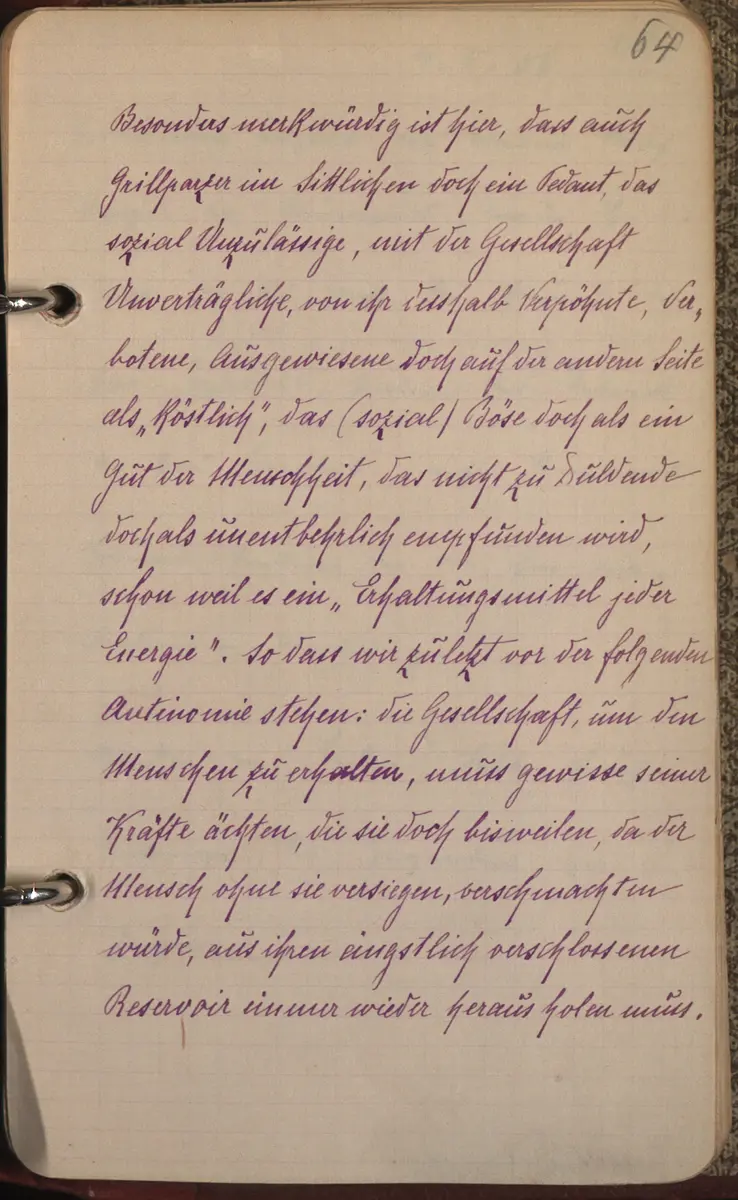 64
Besonders merkwürdig ist hier, dass auch
Grillparzer im Sittlichen doch ein Pedant, das
sozial Unzulässige, mit der Gesellschaft
Unverträgliche, von ihr desshalb Verpöhnte, Ver„
botene, Ausgewiesene doch auf der andern Seite
als „Köstlich", das (sozial) Böse doch als ein
Gut der Menschheit, das nicht zu Duldende
doch als unentbehrlich empfunden wird,
schon weil es ein „Erhaltungsmittel jeder
Energie". So dass wir zuletzt vor der folgenden
Antinomie stehen: die Gesellschaft, um den
Menschen zu erhalten, muss gewisse seiner
Kräfte ächten, die sie doch bisweilen, da der
Mensch ohne sie versiegen, verschmachten
würde, aus ihren ängstlich verschlossenen
Reservoir immer wieder heraus holen muss.